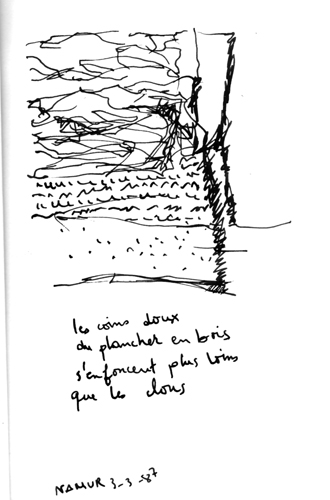 les coins doux
du plancher en bois
s'enfoncent plus loins
que les clous
NAMUR 3-3-87